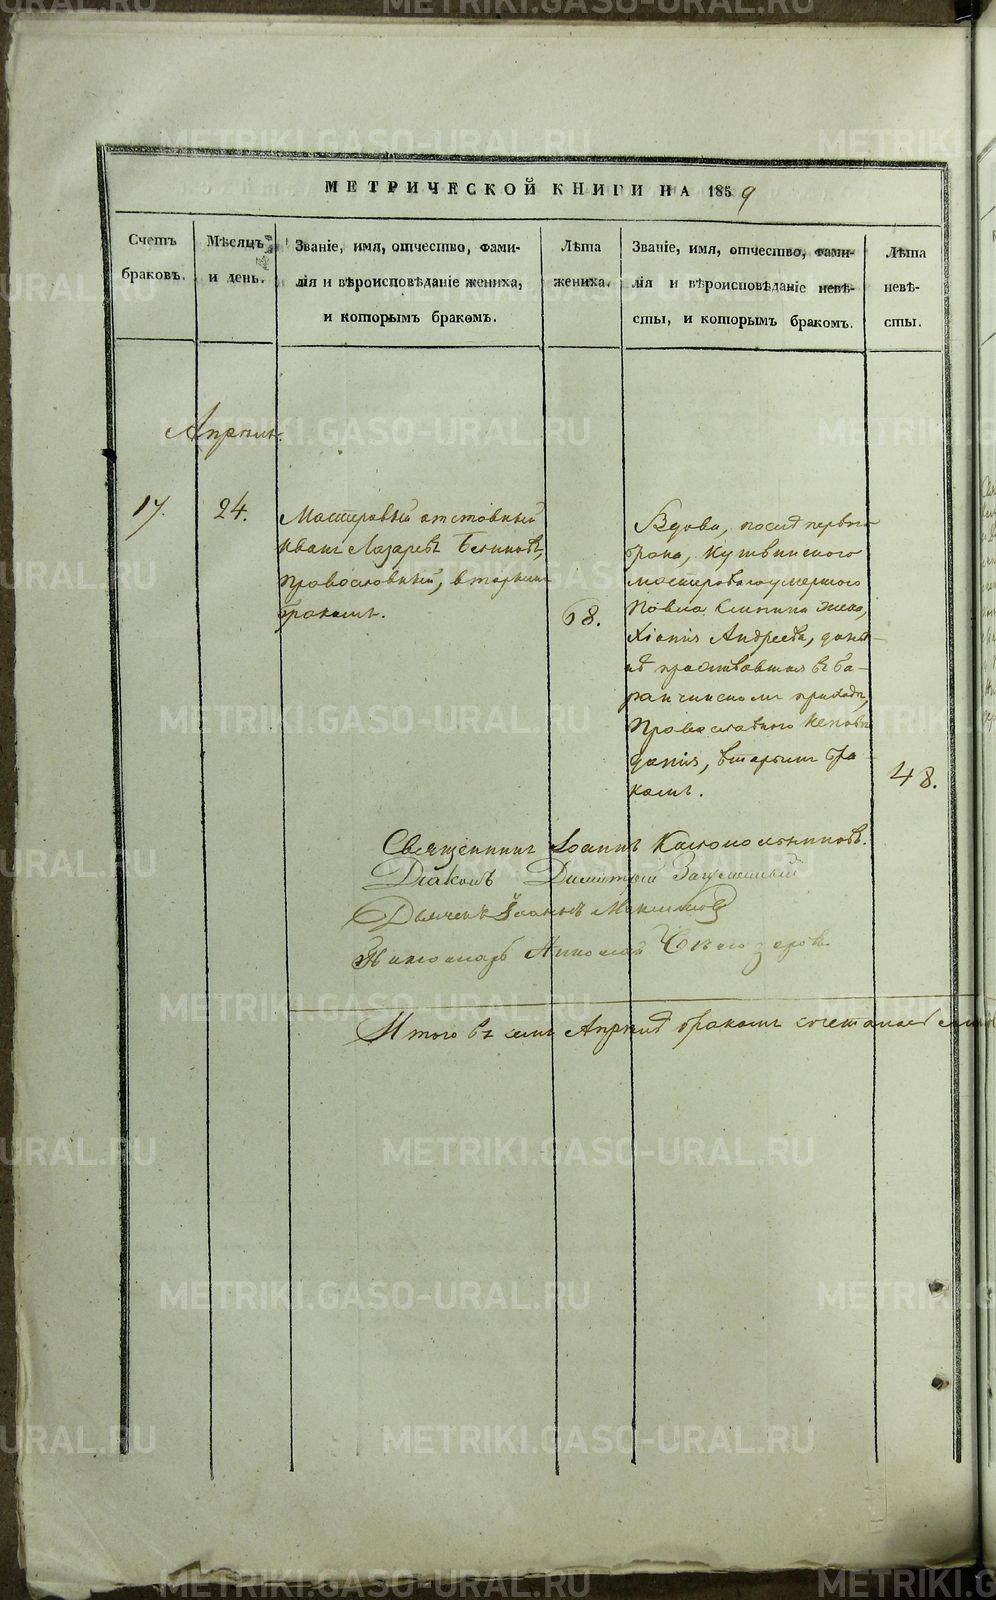 МЕТРИЧЕСКОЙ КНИГИ НА 1859
Счетъ
браковъ.
Мѣсяцъ
и день.
Званіе, имя, отчество, фами-
лія и вѣроисповѣданіе жениха,
и которымъ бракомъ.
Лѣта
жениха.
Званіе, имя, отчество, фами-
лія и вѣроисповѣданіе невѣ-
сты, и которымъ бракомъ.
Лѣта
невѣ-
сты.
Апрѣль.
17.
24.
Мастеровый отставный
Иванъ Лазаревъ
православный, вторымъ
бракомъ.
68.
Вдова, послѣ перваго
брака, Кушвинского
мастероваго умершого
Павла жена,
Хіонія Андреева,
въ Ба-
ранчинскомъ приходѣ,
Православного исповѣ
данія, вторымъ бра-
комъ.
48.
Священникъ Іоаннъ
Діаконъ Димитрій
Дьячекъ Іоаннъ Максимовъ
Пономарь Николай
Итого въ семъ Апрѣлѣ бракомъ сочеталось
METRIKI.GASO-URAL.RU